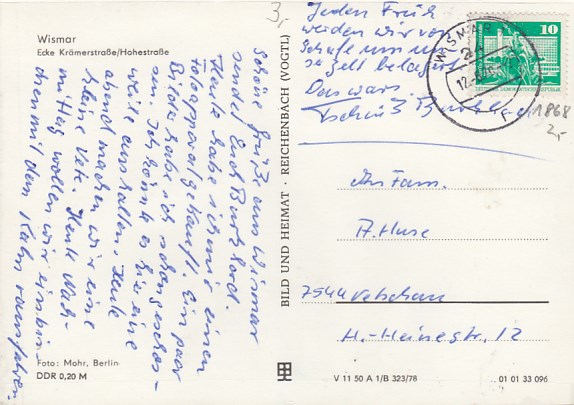 Wismar
Ecke Krämerstraße/Hohestraße
schöne Grüße aus Wismar
sendet Euch Burkhard.
Heute habe ich mir einen
Fotoapparat gekauft. Ein paar
Bilder habe ich schon geschos-
sen. Ich könnte es hier eine
weile aushalten. Heute
abend machen wir eine
kleine Fete. Heute Nach-
mittag wollen wir ein bin-
chen mit dem Kahn rausfahren.
Foto: Mohr, Berlin
DDR 0,20 M
BILD UND HEIMAT · REICHENBACH (VOGTL)
3,-
Jeden Früh
werden wir von
Schafe um uns
belästigt
Das wars.
Tschüß Burkhard
WISMAR
10
1868
2,-
An Fam.
A. Huse
7544 Vetschau
H.-Heinestr. 12
V 11 50 A 1/B 323/78
01 01 33 096